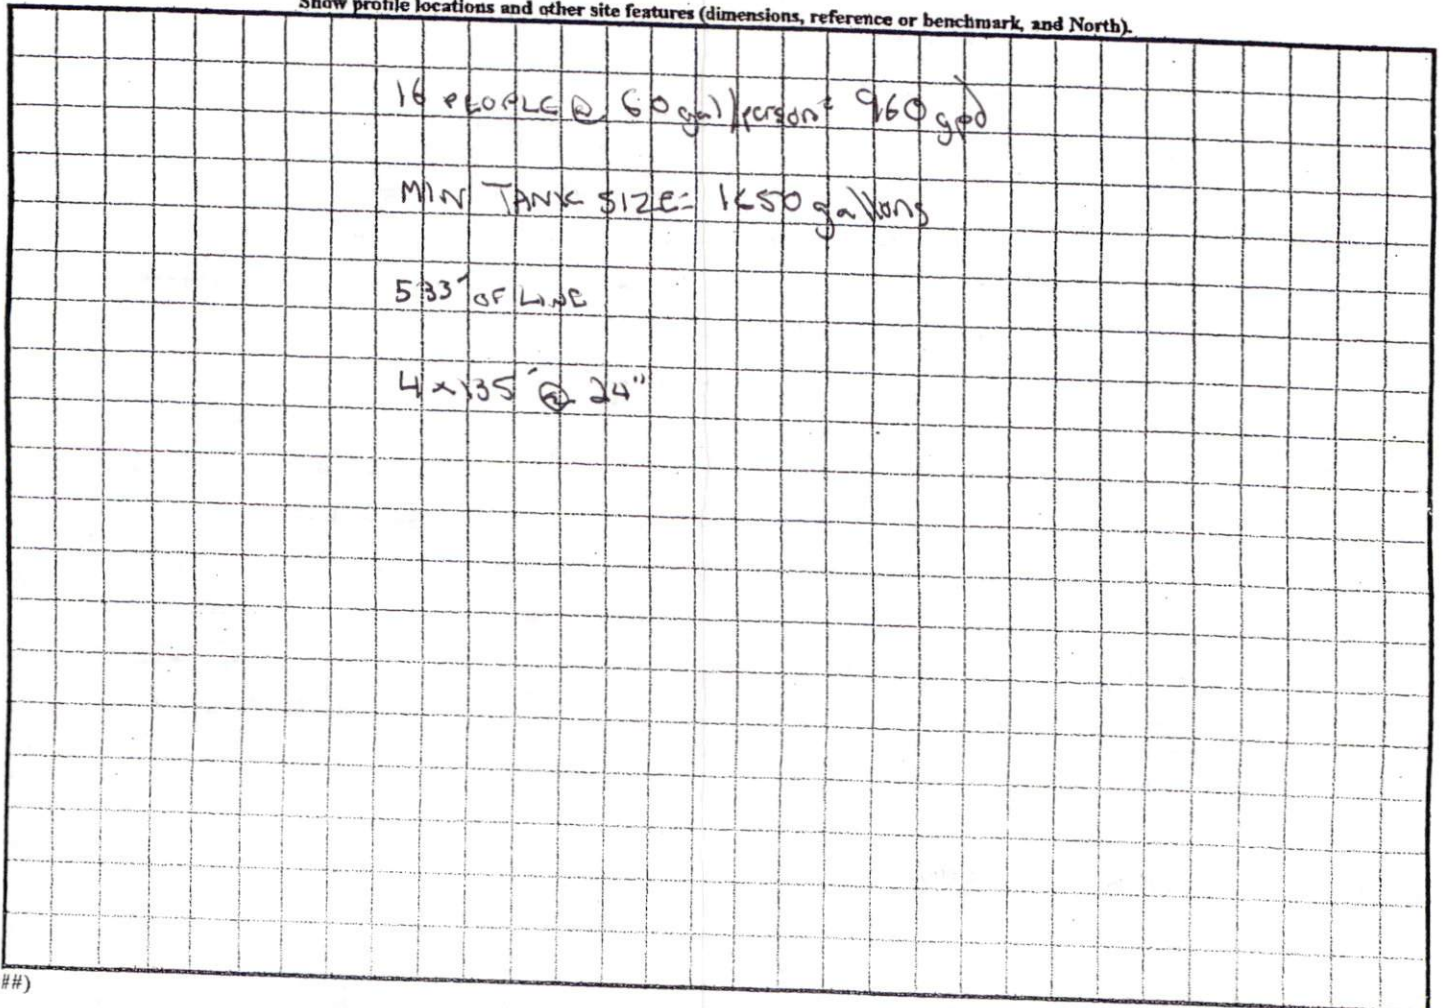 Show profile locations and other site features (dimensions, reference or benchmark, and North).
16 PEOPLE @ 60 gal/person = 960 gpd
MIN TANK SIZE = 1650 gallons
533' OF LINE
4 x 135' @ 24"
##)